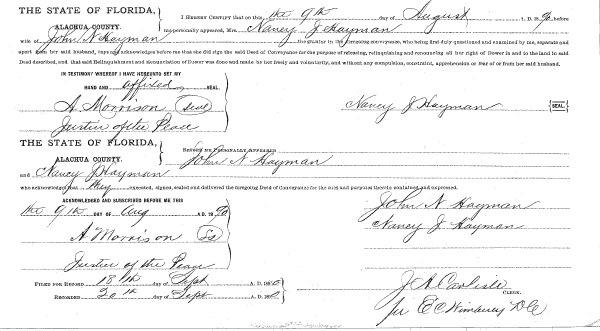 THE STATE OF FLORIDA,
ALACHUA COUNTY.
I HEREBY CERTIFY that on this the 9th day of August A. D. 90 before
me personally appeared, Mrs. Nancy J Hayman
wife of John N Hayman the grantor in the foregoing conveyance, who being first duly questioned and examined by me, separate and
apart from her said husband, says and acknowledges before me that she did sign the said Deed of Conveyance for the purpose of releasing, relinquishing and renouncing all her right of Dower in and to the land in said
Deed described, and that said Relinquishment and Renunciation of Dower was done and made by her freely and voluntarily, and without any compulsion, constraint, apprehension or fear of or from her said husband.
IN TESTIMONY WHEREOF I HAVE HEREUNTO SET MY
HAND AND affixed
A. Morrison (seal)
Justice of the Peace
Nancy J Hayman {SEAL.}
THE STATE OF FLORIDA,
ALACHUA COUNTY.
BEFORE ME PERSONALLY APPEARED John N Hayman
and Nancy J Hayman
who acknowledge that they executed, signed, sealed and delivered the foregoing Deed of Conveyance for the uses and purposes therein contained and expressed.
ACKNOWLEDGED AND SUBSCRIBED BEFORE ME THIS
the 9th DAY OF Aug A. D. 18 90
A Morrison
Justice of the Peace
John N Hayman
Nancy J Hayman
FILED FOR RECORD 18th day of Sept A. D. 1890
RECORDED 20th day of Sept A. D. 1890
J A Carlisle
CLERK.
per E C Wimberly D C